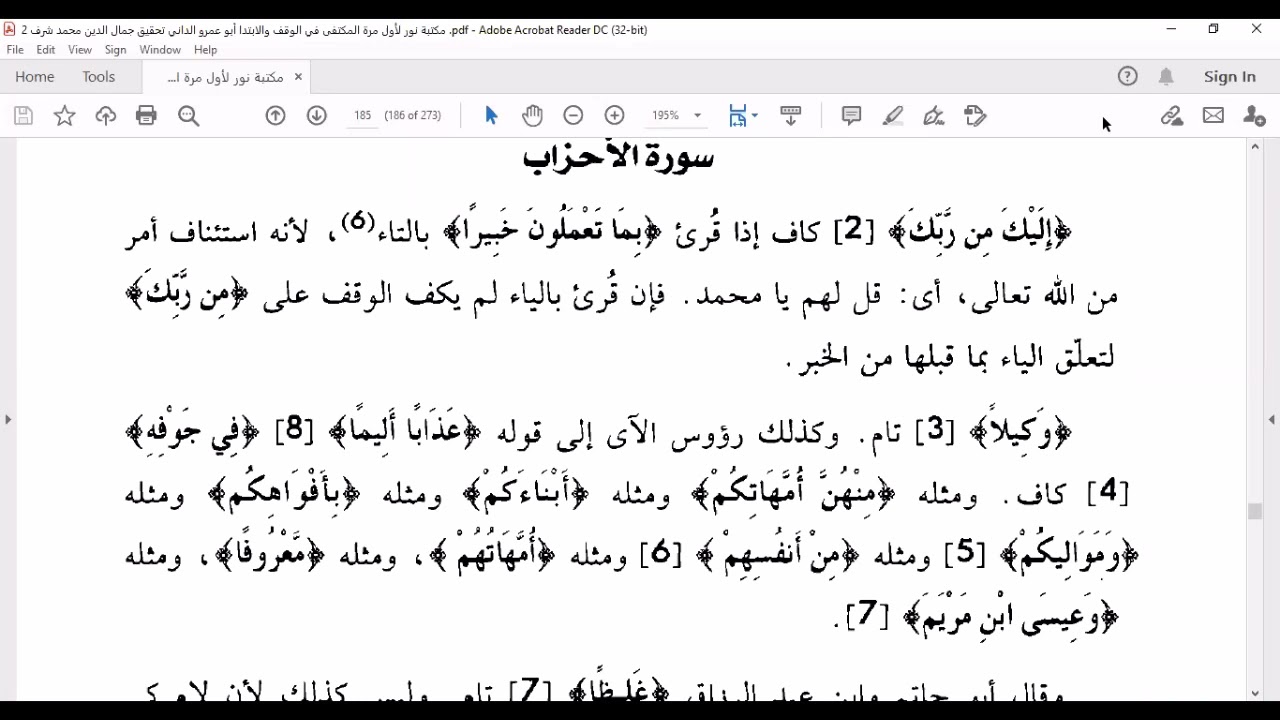 مكتبة نور لأول مرة المكتفى في الوقف والابتدا أبو عمرو الداني تحقيق جمال الدين محمد شرف 2 .pdf - Adobe Acrobat Reader DC (32-bit)
File Edit View Sign Window Help
Home Tools مكتبة نور لأول مرة ا... × Sign In
185 (186 of 273) 195%
سورة الأحزاب
﴿إِلَيْكَ مِن رَّبِّكَ﴾ [2] كاف إذا قُرئ ﴿بِمَا تَعْمَلُونَ خَبِيرًا﴾ بالتاء(6)، لأنه استئناف أمر
من الله تعالى، أى: قل لهم يا محمد. فإن قُرئ بالياء لم يكف الوقف على ﴿مِن رَّبِّكَ﴾
لتعلّق الياء بما قبلها من الخبر.
﴿وَكِيلاً﴾ [3] تام. وكذلك رؤوس الآى إلى قوله ﴿عَذَابًا أَلِيمًا﴾ [8] ﴿فِي جَوْفِهِ﴾
[4] كاف. ومثله ﴿مِنْهُنَّ أُمَّهَاتِكُمْ﴾ ومثله ﴿أَبْنَاءَكُمْ﴾ ومثله ﴿بِأَفْوَاهِكُم﴾ ومثله
﴿وَمَوَالِيكُمْ﴾ [5] ومثله ﴿مِنْ أَنفُسِهِمْ﴾ [6] ومثله ﴿أُمَّهَاتُهُمْ﴾، ومثله ﴿مَّعْرُوفًا﴾، ومثله
﴿وَعِيسَى ابْنِ مَرْيَمَ﴾ [7].
وقال أبو حاتم وابن عبد الرزاق ﴿غَلِيظًا﴾ [7] تام. وليس كذلك لأن لام كى